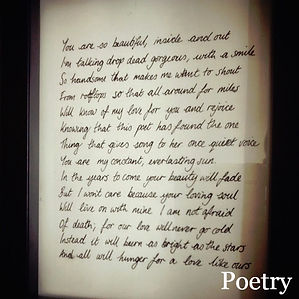 You are so beautiful, inside and out
I'm talking drop dead gorgeous, with a smile
So handsome that makes me want to shout
From rooftops so that all around for miles
Will know of my love for you and rejoice
Knowing that this poet has found the one
Thing that gives song to her once quiet voice
You are my constant, everlasting sun.
In the years to come your beauty will fade
But I won't care because your loving soul
Will live on with mine. I am not afraid
Of death; for our love will never go cold
Instead it will burn as bright as the stars
And all will hunger for a love like ours
Poetry